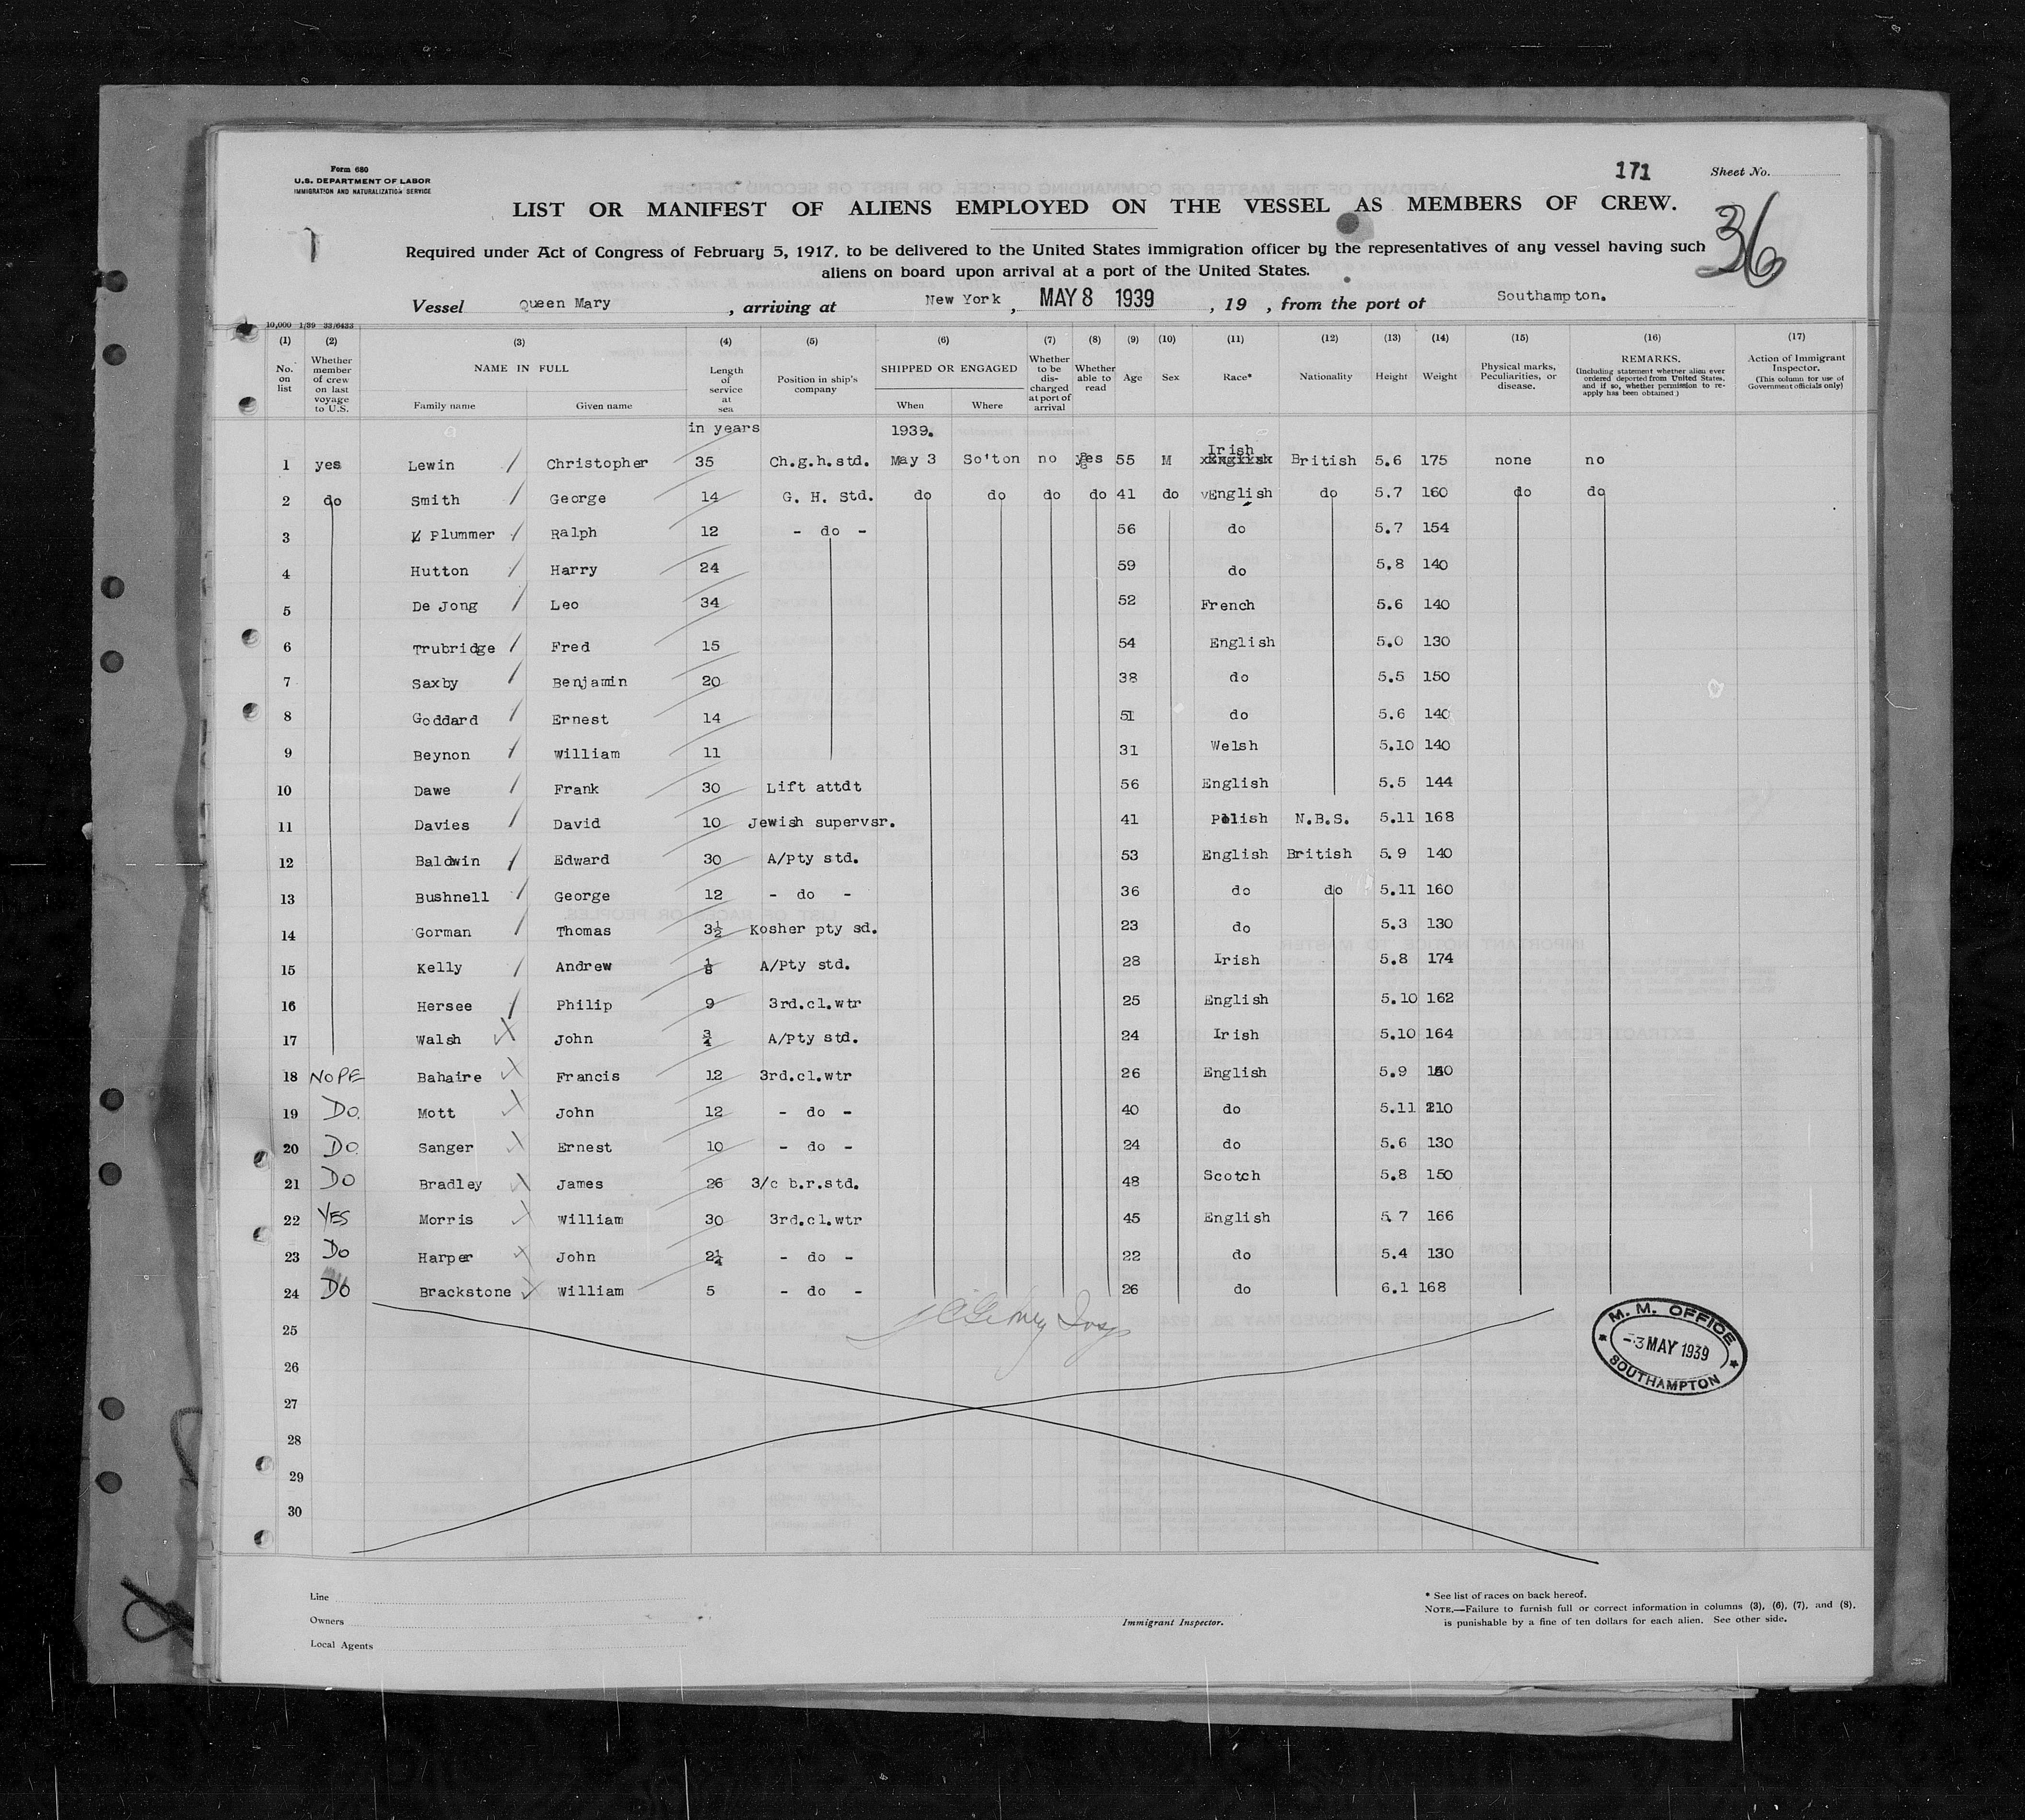 Form 680
U.S. DEPARTMENT OF LABOR
IMMIGRATION AND NATURALIZATION SERVICE
171 Sheet No.
LIST OR MANIFEST OF ALIENS EMPLOYED ON THE VESSEL AS MEMBERS OF CREW.
36
Required under Act of Congress of February 5, 1917, to be delivered to the United States immigration officer by the representatives of any vessel having such
aliens on board upon arrival at a port of the United States.
Vessel Queen Mary , arriving at New York , MAY 8 1939 , 19 , from the port of Southampton.
10,000 1/39 33/6433
(1) (2) (3) (4) (5) (6) (7) (8) (9) (10) (11) (12) (13) (14) (15) (16) (17)
No. on list Whether member of crew on last voyage to U.S. NAME IN FULL Family name Given name Length of service at sea Position in ship's company SHIPPED OR ENGAGED When Where Whether to be discharged at port of arrival Whether able to read Age Sex Race* Nationality Height Weight Physical marks, Peculiarities, or disease. REMARKS. (Including statement whether alien ever ordered deported from United States, and if so, whether permission to re-apply has been obtained) Action of Immigrant Inspector. (This column for use of Government officials only)
in years 1939.
1 yes Lewin / Christopher 35 Ch.g.h.std. May 3 So'ton no yes 55 M Irish xEnglishx British 5.6 175 none no
2 do Smith / George 14 G. H. Std. do do do do 41 do vEnglish do 5.7 160 do do
3 Plummer / Ralph 12 - do - 56 do 5.7 154
4 Hutton / Harry 24 59 do 5.8 140
5 De Jong / Leo 34 52 French 5.6 140
6 Trubridge / Fred 15 54 English 5.0 130
7 Saxby / Benjamin 20 38 do 5.5 150
8 Goddard / Ernest 14 51 do 5.6 140
9 Beynon / William 11 31 Welsh 5.10 140
10 Dawe / Frank 30 Lift attdt 56 English 5.5 144
11 Davies / David 10 Jewish supervsr. 41 Polish N.B.S. 5.11 168
12 Baldwin / Edward 30 A/Pty std. 53 English British 5.9 140
13 Bushnell / George 12 - do - 36 do do 5.11 160
14 Gorman / Thomas 3½ Kosher pty sd. 23 do 5.3 130
15 Kelly / Andrew ⅛ A/Pty std. 28 Irish 5.8 174
16 Hersee / Philip 9 3rd.cl.wtr 25 English 5.10 162
17 Walsh John ¾ A/Pty std. 24 Irish 5.10 164
18 NOPE Bahaire Francis 12 3rd.cl.wtr 26 English 5.9
19 Do. Mott John 12 - do - 40 do 5.11 210
20 Do Sanger Ernest 10 - do - 24 do 5.6 130
21 Do Bradley James 26 3/c b.r.std. 48 Scotch 5.8 150
22 YES Morris William 30 3rd.cl.wtr 45 English 5.7 166
23 Do Harper John 2¼ - do - 22 do 5.4 130
24 Do Brackstone William 5 - do - 26 do 6.1 168
25
26
27
28
29
30
M. M. OFFICE
-3 MAY 1939
SOUTHAMPTON
Line
Owners
Local Agents
Immigrant Inspector.
* See list of races on back hereof.
NOTE.—Failure to furnish full or correct information in columns (3), (6), (7), and (8),
is punishable by a fine of ten dollars for each alien. See other side.